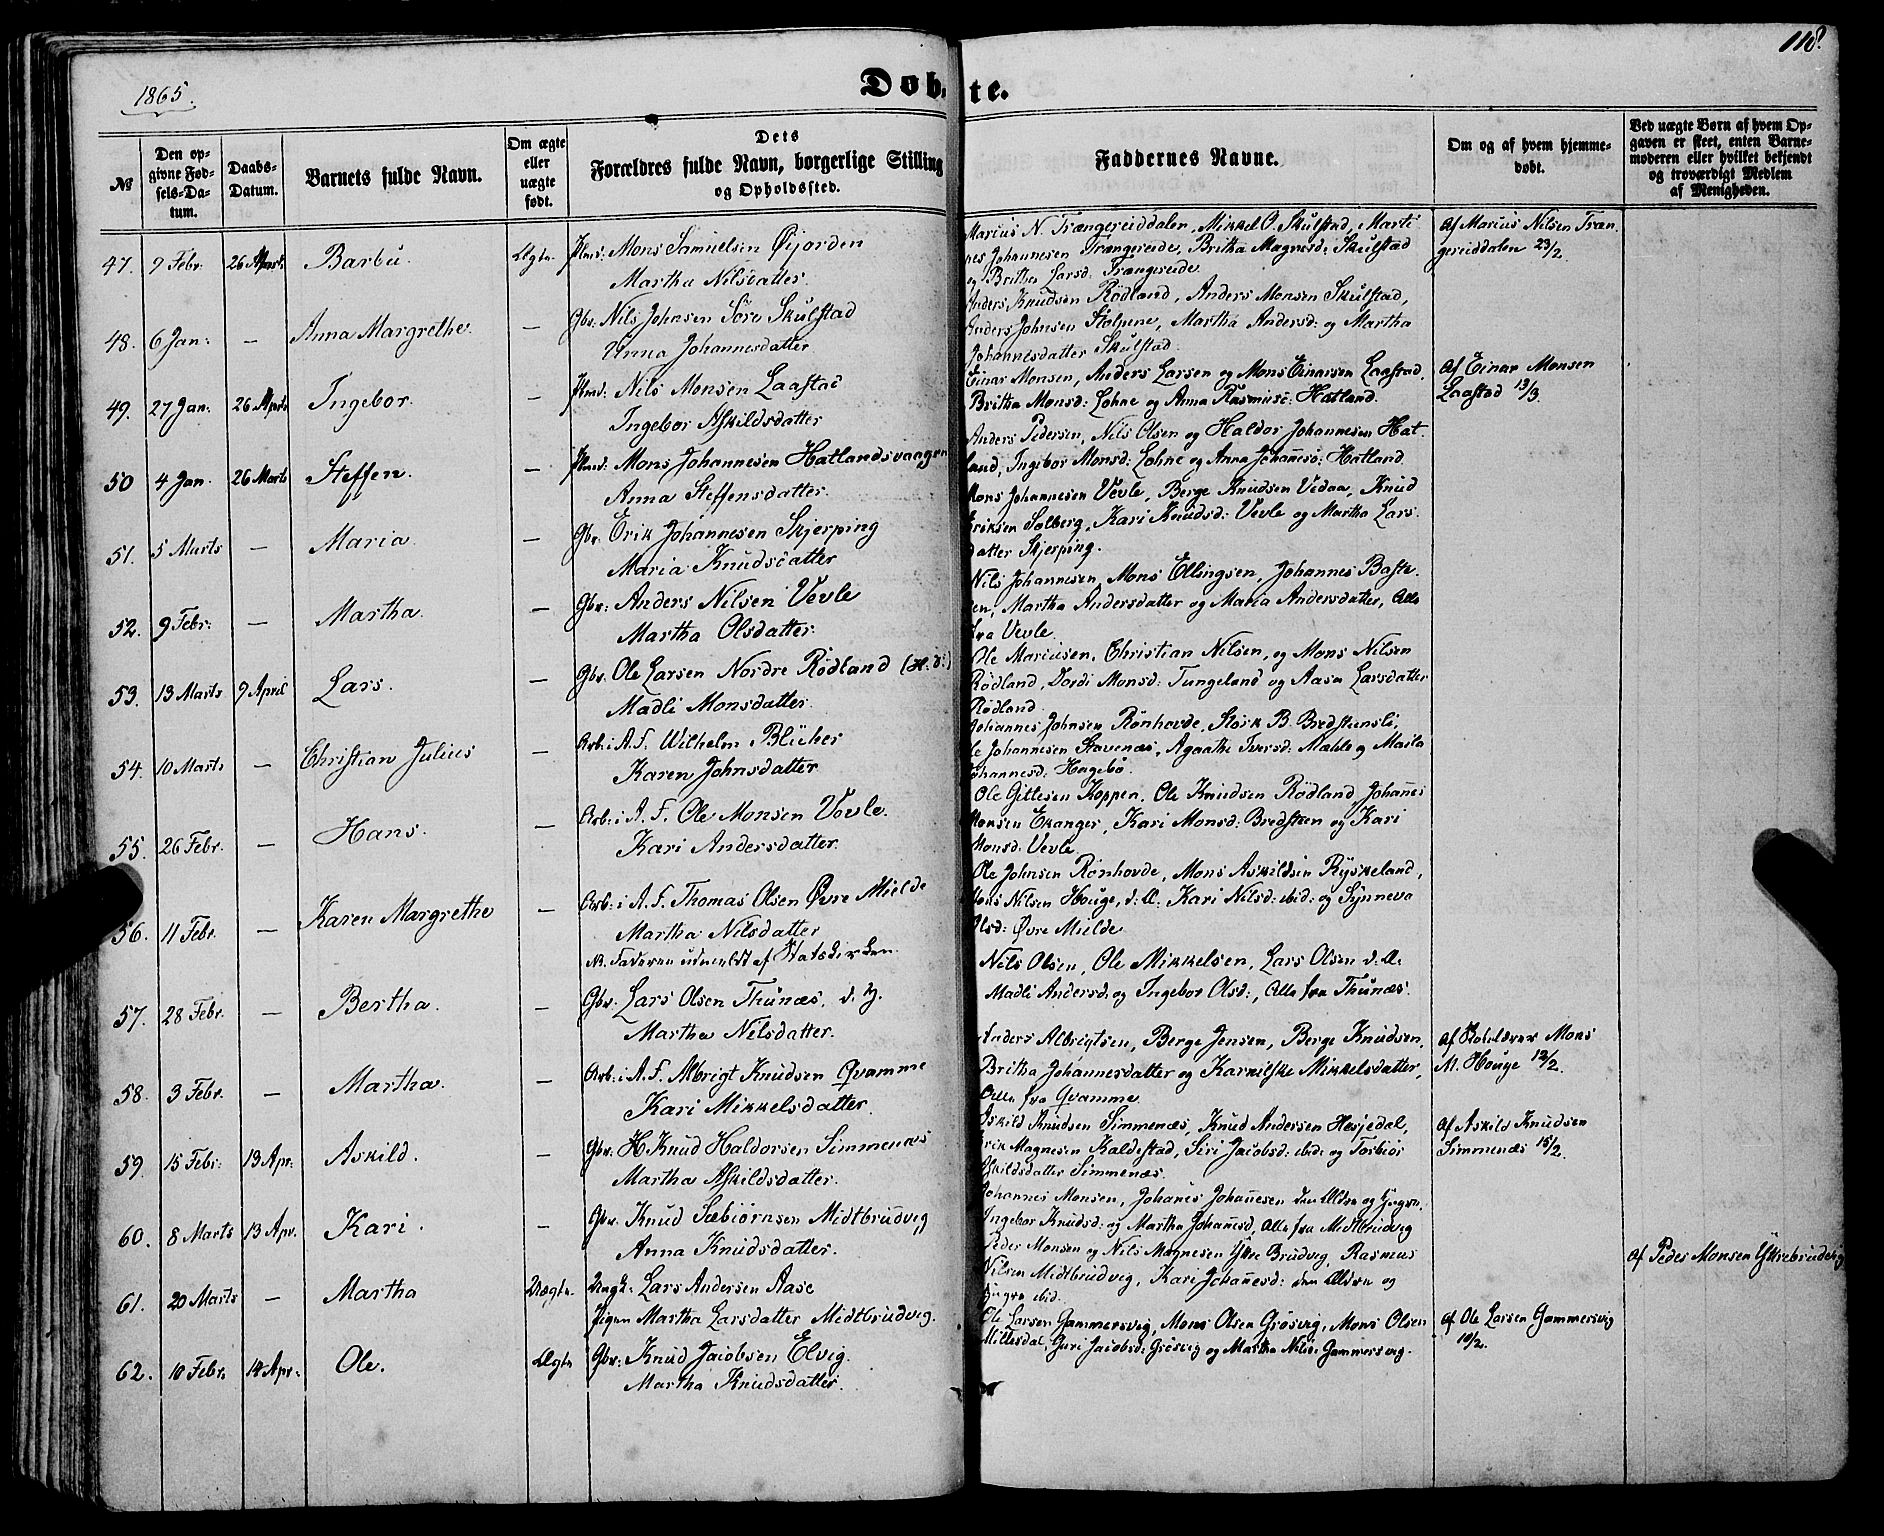 1865.
118.
Døb te.
№
Den opgivne Fødsels-Datum.
Daabs-Datum.
Barnets fulde Navn.
Om ægte eller uægte født.
Dets Forældres fulde Navn, borgerlige Stilling og Opholdssted.
Faddernes Navne.
Om og af hvem hjemmedøbt.
Ved uægte Børn af hvem Opgaven er skeet, enten Barnemoderen eller hvilket bekjendt og troværdigt Medlem af Menigheden.
47. 9 Febr. 26 Marts Barbu. Ægte.
Mons Samuelsen Øijorden
Martha Nilsdatter.
Marius N. Trængereiddalen, Mikkel O. Skulstad, Marti
nes Johannesen Trængereide, Britha Magnesd: Skulstad
og Britha Larsd: Trængereide
Af Marius Nilsen Træn
gereiddalen 23/2
48. 6 Jan: — Anna Margrethe. —
Gbr. Nils Johnsen Søre Skulstad
Anna Johannesdatter
Anders Knudsen Rødland, Anders Monsen Skulstad,
Anders Johnsen Stølpene, Martha Andersd: og Martha
Johannesdatter Skulstad.
49. 27 Jan: 26 Marts Ingebor. —
Nils Monsen Laastad
Ingebor Askildsdatter
Einar Monsen, Anders Larsen og Mons Einarsen Laastad,
Britha Monsd: Lohne og Anna Rasmusd: Hatland.
Af Einar Monsen
Laastad 13/3.
50 4 Jan. 26 Marts Steffen. —
Mons Johannesen Hatlandsvaagen
Anna Steffensdatter.
Anders Pedersen, Nils Olsen og Haldor Johannesen Hat
land, Ingebor Monsd: Lohne og Anna Johannesd: Hatland.
51. 5 Marts — Maria. —
Gbr. Erik Johannesen Skjerping
Maria Knudsdatter
Mons Johannesen Vevle, Berge Knudsen Vedaa, Knud
Eriksen Solberg, Kari Knudsd: Vevle og Martha Lars
datter Skjerping.
52. 9 Febr: — Martha. —
Gbr: Anders Nilsen Vevle
Martha Olsdatter.
Nils Johannesen, Mons Ellingsen, Johannes Baste
sen, Martha Andersdatter og Maria Andersdatter, Alle
fra Vevle.
53. 13 Marts 9 April Lars. —
Gbr. Ole Larsen Nordre Rødland
Madli Monsdatter.
Ole Mariusen, Christian Nilsen, og Mons Nilsen
Rødland, Dordi Monsd: Tungeland og Aasa Larsdatter
Rødland
54. 10 Marts — Christian Julius —
Arb: i A. F. Wilhelm Blücher
Karen Johnsdatter
Johannes Johnsen Rønhovde, Størk B. Bredstensli,
Ole Johannesen Stavenæs, Agaathe Iversd: Mæhle og Maria
Johannesd: Hagebø.
55. 26 Febr. — Hans. —
Arb: i A. F. Ole Monsen Vevle.
Kari Andersdatter.
Ole Gittlesen Koppen, Ole Knudsen Rødland, Johanes
Monsen Ekanger, Kari Monsd: Bredsteen og Kari
Monsd: Vevle.
56. 11 Febr. — Karen Margrethe —
Arb: i A. F. Thomas Olsen Øvre Mielde
Martha Nilsdatter
NB. Faderen udmeldt af Statskirken.
Ole Johnsen Rønhovde, Mons Askildsen Ryskeland,
Mons Nilsen Houge, d. Æ. Kari Nilsd: ibid: og Synneva
Olsd: Øvre Mielde.
57. 28 Febr. — Bertha. —
Gbr. Lars Olsen Thunæs, d. y.
Martha Nilsdatter.
Nils Olsen, Ole Mikkelsen, Lars Olsen d. Æ.
Madli Andersd: og Ingebor Olsd:, Alle fra Thunæs.
58. 3 Febr. — Martha. —
Arb: i A. F. Albrigt Knudsen Qvamme
Kari Mikkelsdatter.
Anders Albrigtsen, Berge Jensen, Berge Knudsen,
Britha Johannesdatter og Karnilske Mikkelsdatter,
Alle fra Qvamme
Af Skolelærer Mons
M. Houge 12/2.
59. 15 Febr: 13 Apr: Askild. —
Gbr. H Knud Haldorsen Simmenæs
Martha Askildsdatter.
Askild Knudsen Simmenæs, Knud Andersen Hesjedal,
Erik Magnesen Kaldestad, Siri Jacobsd: ibid: og Torbiør
Askildsdatter Simmenæs.
Af Askild Knudsen
Simmenæs 15/2.
60. 8 Marts 13 Apr. Kari. —
Gbr. Knud Sæbiørnsen Midtbrudvig
Anna Knudsdatter.
Johannes Monsen, Johanes Johanesen den Ældre og Yngre,
Ingebor Knudsd: og Martha Johanesd. Alle fra Midtbrudvig
61. 20 Marts — Martha Uægte.
Ungk: Lars Andersen Aase
Pigen Martha Larsdatter Midtbrudvig.
Peder Monsen og Nils Magnesen Ystre Brudvig, Rasmus
Nilsen Midtbrudvig, Kari Johanesd: den Ældre og
Yngre ibid.
Af Peder Monsen Ystrebrudvig
62. 10 Febr. 14 Apr. Ole. Ægte
Gbr: Knud Jacobsen Elvig.
Martha Knudsdatter.
Ole Larsen Gammersvig, Mons Olsen Grøsvig, Mons Olsen
Millesdal, Guri Jacobsd: Grøsvig og Martha Nilsd: Gammersvig.
Af Ole Larsen Gammersvig
10/2.